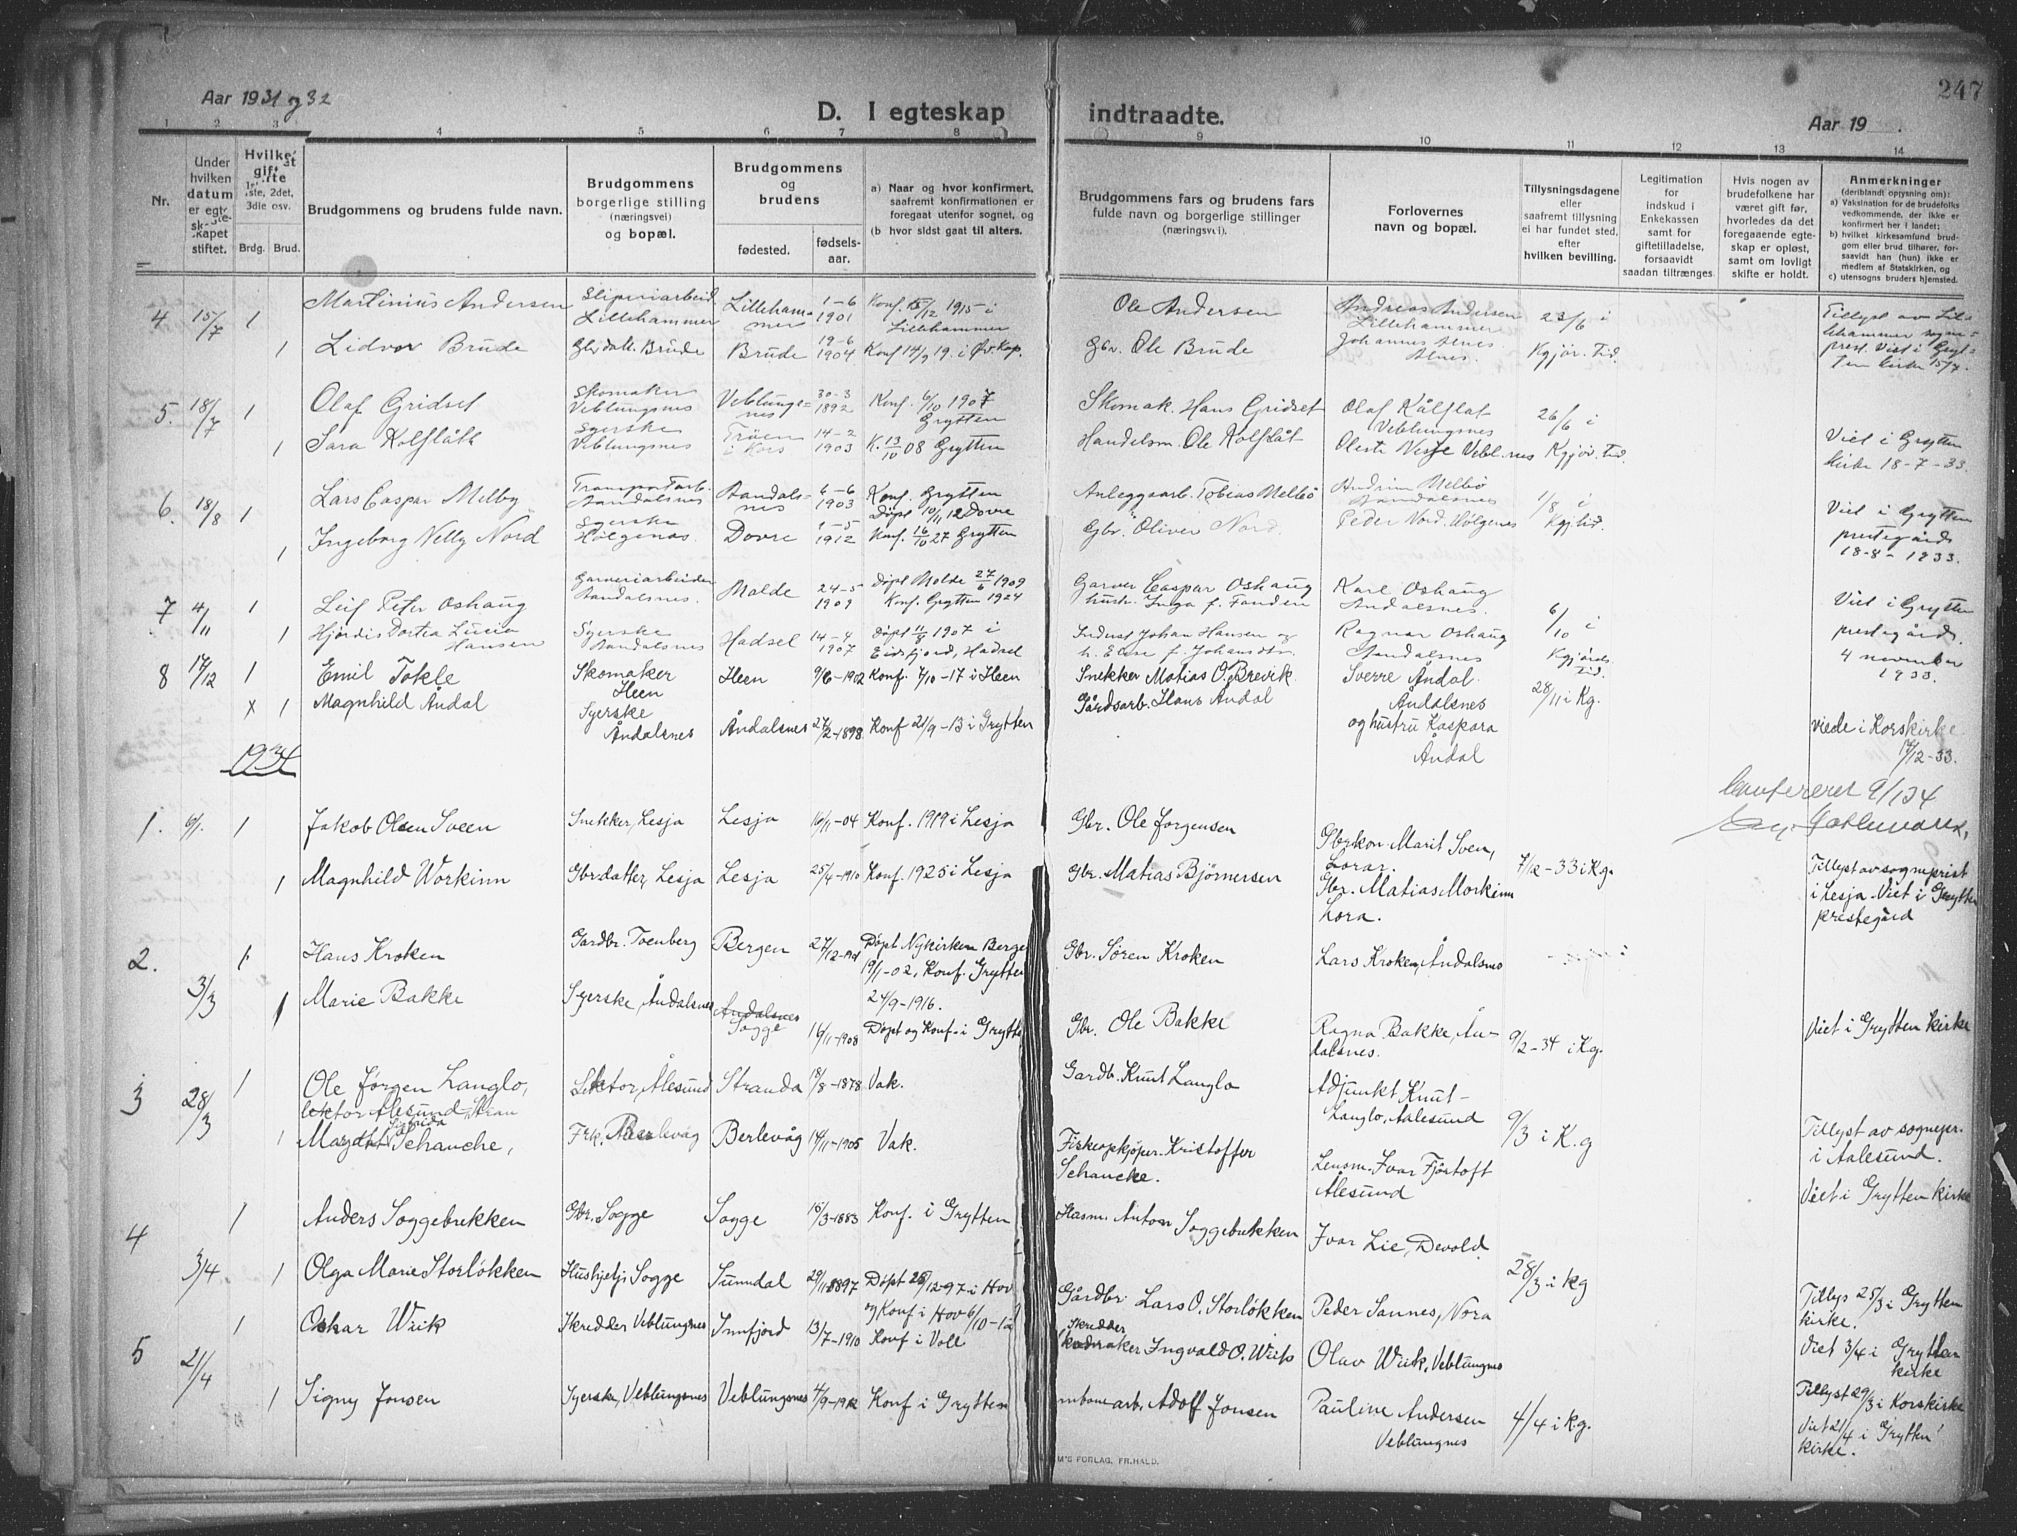 Aar 1931 og 32
D. I egteskap indtraadte.
Aar 19 .
247
1 2 3 4 5 6 7 8 9 10 11 12 13 14
Nr.
Under hvilken datum er egteskapet stiftet.
Hvilket gifte
1ste, 2det, 3dle osv.
Brdg. Brud.
Brudgommens og brudens fulde navn.
Brudgommens borgerlige stilling (næringsvei) og bopæl.
Brudgommens og brudens
fødested.
fødsels-aar.
a) Naar og hvor konfirmert, saafremt konfirmationen er foregaat utenfor sognet, og
(b hvor sidst gaat til alters.
Brudgommens fars og brudens fars fulde navn og borgerlige stillinger (næringsvei).
Forlovernes navn og bopæl.
Tillysningsdagene eller saafremt tillysning ei har fundet sted, efter hvilken bevilling.
Legitimation for indskud i Enkekassen samt for giftetilladelse, forsaavidt saadan tiltrænges.
Hvis nogen av brudefolkene har været gift før, hvorledes da det foregaaende egteskap er opløst, samt om lovligt skifte er holdt.
Anmerkninger
(deriblandt opysning om):
a) Vaksination for de brudefolks vedkommende, der ikke er konfirmert her i landet;
b) hvilket kirkesamfund brudgom eller brud tilhører, forsaavidt han (hun) ikke er medlem af Statskirken, og
c) utensogns bruders hjemsted.
4 15/7 1 Martinius Andersen Sliperiarbeid. Lillehammer Lillehammer 1-6 1901 Konf. 15/12 1915 i Lillehammer Ole Andersen Andreas Andersen Lillehammer 23/6 i
1 Lidvor Brude Gbr.datt. Brude Brude 19-6 1904 Konf 14/9 19. i Øv.Kap. Gbr. Ole Brude Johannes Alnes Alnes. Kgjør. Tid. Tillyst av Lillehammer sogneprest. Viet i Grytten kirke 15/7.
5. 18/7 1 Olaf Gridset Skomaker Veblungsnes Veblungsnes 30-3 1892 Konf. 6/10 1907 Grytten Skomak. Hans Gridset Olaf Kålflat Veblungsnes 26/6 i
1 Sara Kolflått Syerske Veblungsnes Trøen i Kors 14-2 1903 K. 13/10 08 Grytten Handelsm. Ole Kolflåt Oleste Vestre Vebl.nes Kgjør. Tid. Viet i Grytten kirke 18-7-33.
6. 18/8 1 Lars Caspar Melby Transportarb. Aandalsnes Aandalsnes 6-6 1903 Konf. Grytten Anleggsarb. Tobias Melbø Andrim Melbø Aandalsnes 1/8 i
1 Ingeborg Nelly Nord Syerske Hølgenes Dovre 1-5 1912 Døpt 10/11 12 Dovre Konf. 16/10 27 Grytten Gbr. Oliver Nord. Peder Nord. Hølgenes Kgj.tid. Viet i Grytten prestegård 18-8-1933.
7 4/11 1 Leif Peter Oshaug Garveriarbeider Aandalsnes. Molde 24-5 1909 Døpt Molde 27/6 1909 Konf. Grytten 1924 Garver Caspar Oshaug hustr. Inga f. Fonden Karl Oshaug Aandalsnes. 6/10 i
1 Hjørdis Dortea Lucia Hansen Syerske Aandalsnes Hadsel 14-4 1907 Døpt 11/8 1907 i Eidsfjord, Hadsel Johan Hansen og h. Else f. Johansdtr. Ragnar Oshaug Aandalsnes Kgjørds Tid. Viet i Grytten prestegård. 4 november 1933.
8 17/12 1 Emil Tokle Skomaker Heen Heen 9/6-1902 Konf. 7/10-17 i Heen Snekker Matias O. Brevik Sverre Åndal. Åndalsnes 28/11 i Kg.
x 1 Magnhild Åndal Syerske Åndalsnes Åndalsnes 27/2-1898 Konf 21/9-13 i Grytten Gårdsarb. Hans Åndal og hustru Kaspara Åndal viede i Korskirke 17/12-33.
1934
Confereret 9/1 34
1. 6/1. 1 Jakob Olsen Sveen Snekker, Lesja Lesja 16/11-04 Konf. 1919 i Lesja Gbr. Ole Jorgensen Gbrkon. Marit Sveen, Lorar.
1 Magnhild Workinn Gbrdatter Lesja Lesja 25/4-1910 Konf. 1925 i Lesja Gbr. Matias Bjørnersen Gbr. Matias Morkinn Lora. 7/12-33 i Kg. Tillyst av sogneprest i Lesja. Viet i Grytten prestegård
2. 3/3 1 Hans Kroken Gardbr. Toenberg Bergen 27/12-1901 Døpt Nykirken Bergen 19/1-02, Konf. Grytten 24/9-1916. Gbr. Søren Kroken Lars Kroken, Åndalsnes
1 Marie Bakke Syerske, Åndalsnes Åndalsnes Sogge 16/11-1908 Døpt og Konf. i Grytten Gbr. Ole Bakke Ragna Bakke, Åndalsnes. 9/2-34 i Kg. Viet i Grytten kirke
3 28/3 1 Ole Jørgen Langlo, lektor Ålesund Lektor, Ålesund Stranda 18/8-1878 Vak. Gardbr. Knut Langlo Adjunkt Knut Langlo, Aalesund
1 Schanche, Frk. Berlevåg Berlevåg 14/11-1905 Vak. Fiskeopkjøper. Kristoffer Schancke. Lensm. Ivar Fjørtoft Ålesund 9/3 i K.g Tillyst av sognepr. i Aalesund. Viet i Grytten kirke
4 3/4 1 Anders Soggebrekken Gbr. Sogge Sogge 15/3-1883 Konf. i Grytten Husm. Anton Soggebrekken Ivar Lie, Devold
1 Olga Marie Storløkken Hushjelp Sogge Sunndal 29/11 1897 Døpt 26/12-97 i Hov og Konf i Hov 6/10-12 Gårdbr. Lars O. Storløkken Peder Sannes, Nora 28/3 i kg Tillys 25/3 i Grytten kirke. Viet 3/4 i Grytten kirke
5 21/4 1 Oskar Wiik Skredder Veblungsnes Innfjord 13/7-1910 Konf i Voll Skredder Ingvald O. Wiik Olav Wiik, Veblungsnes
1 Signy Jonsen Syerske, Veblungsnes Veblungsnes 4/9-1912 Konf i Grytten arb. Adolf Jonsen Pauline Andersen Veblungsnes 4/4 i kg. Tillyst 29/3 i Korskirke Viet 21/4 i Grytten kirke.
M'S FORLAG, FR.HALD.